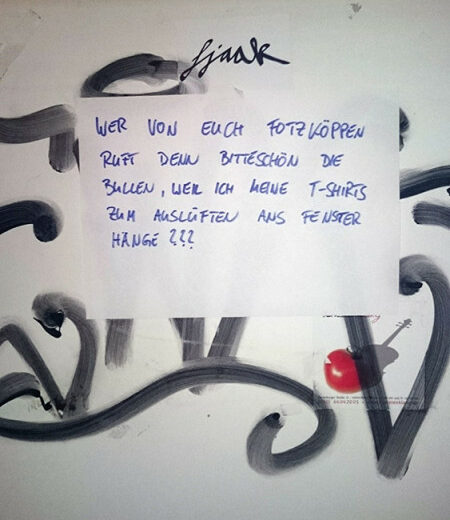 fjaak
WER VON EUCH FOTZKÖPPEN
RUFT DENN BITTESCHÖN DIE
BULLEN, WEIL ICH MEINE T-SHIRTS
ZUM AUSLÜFTEN ANS FENSTER
HÄNGE ???